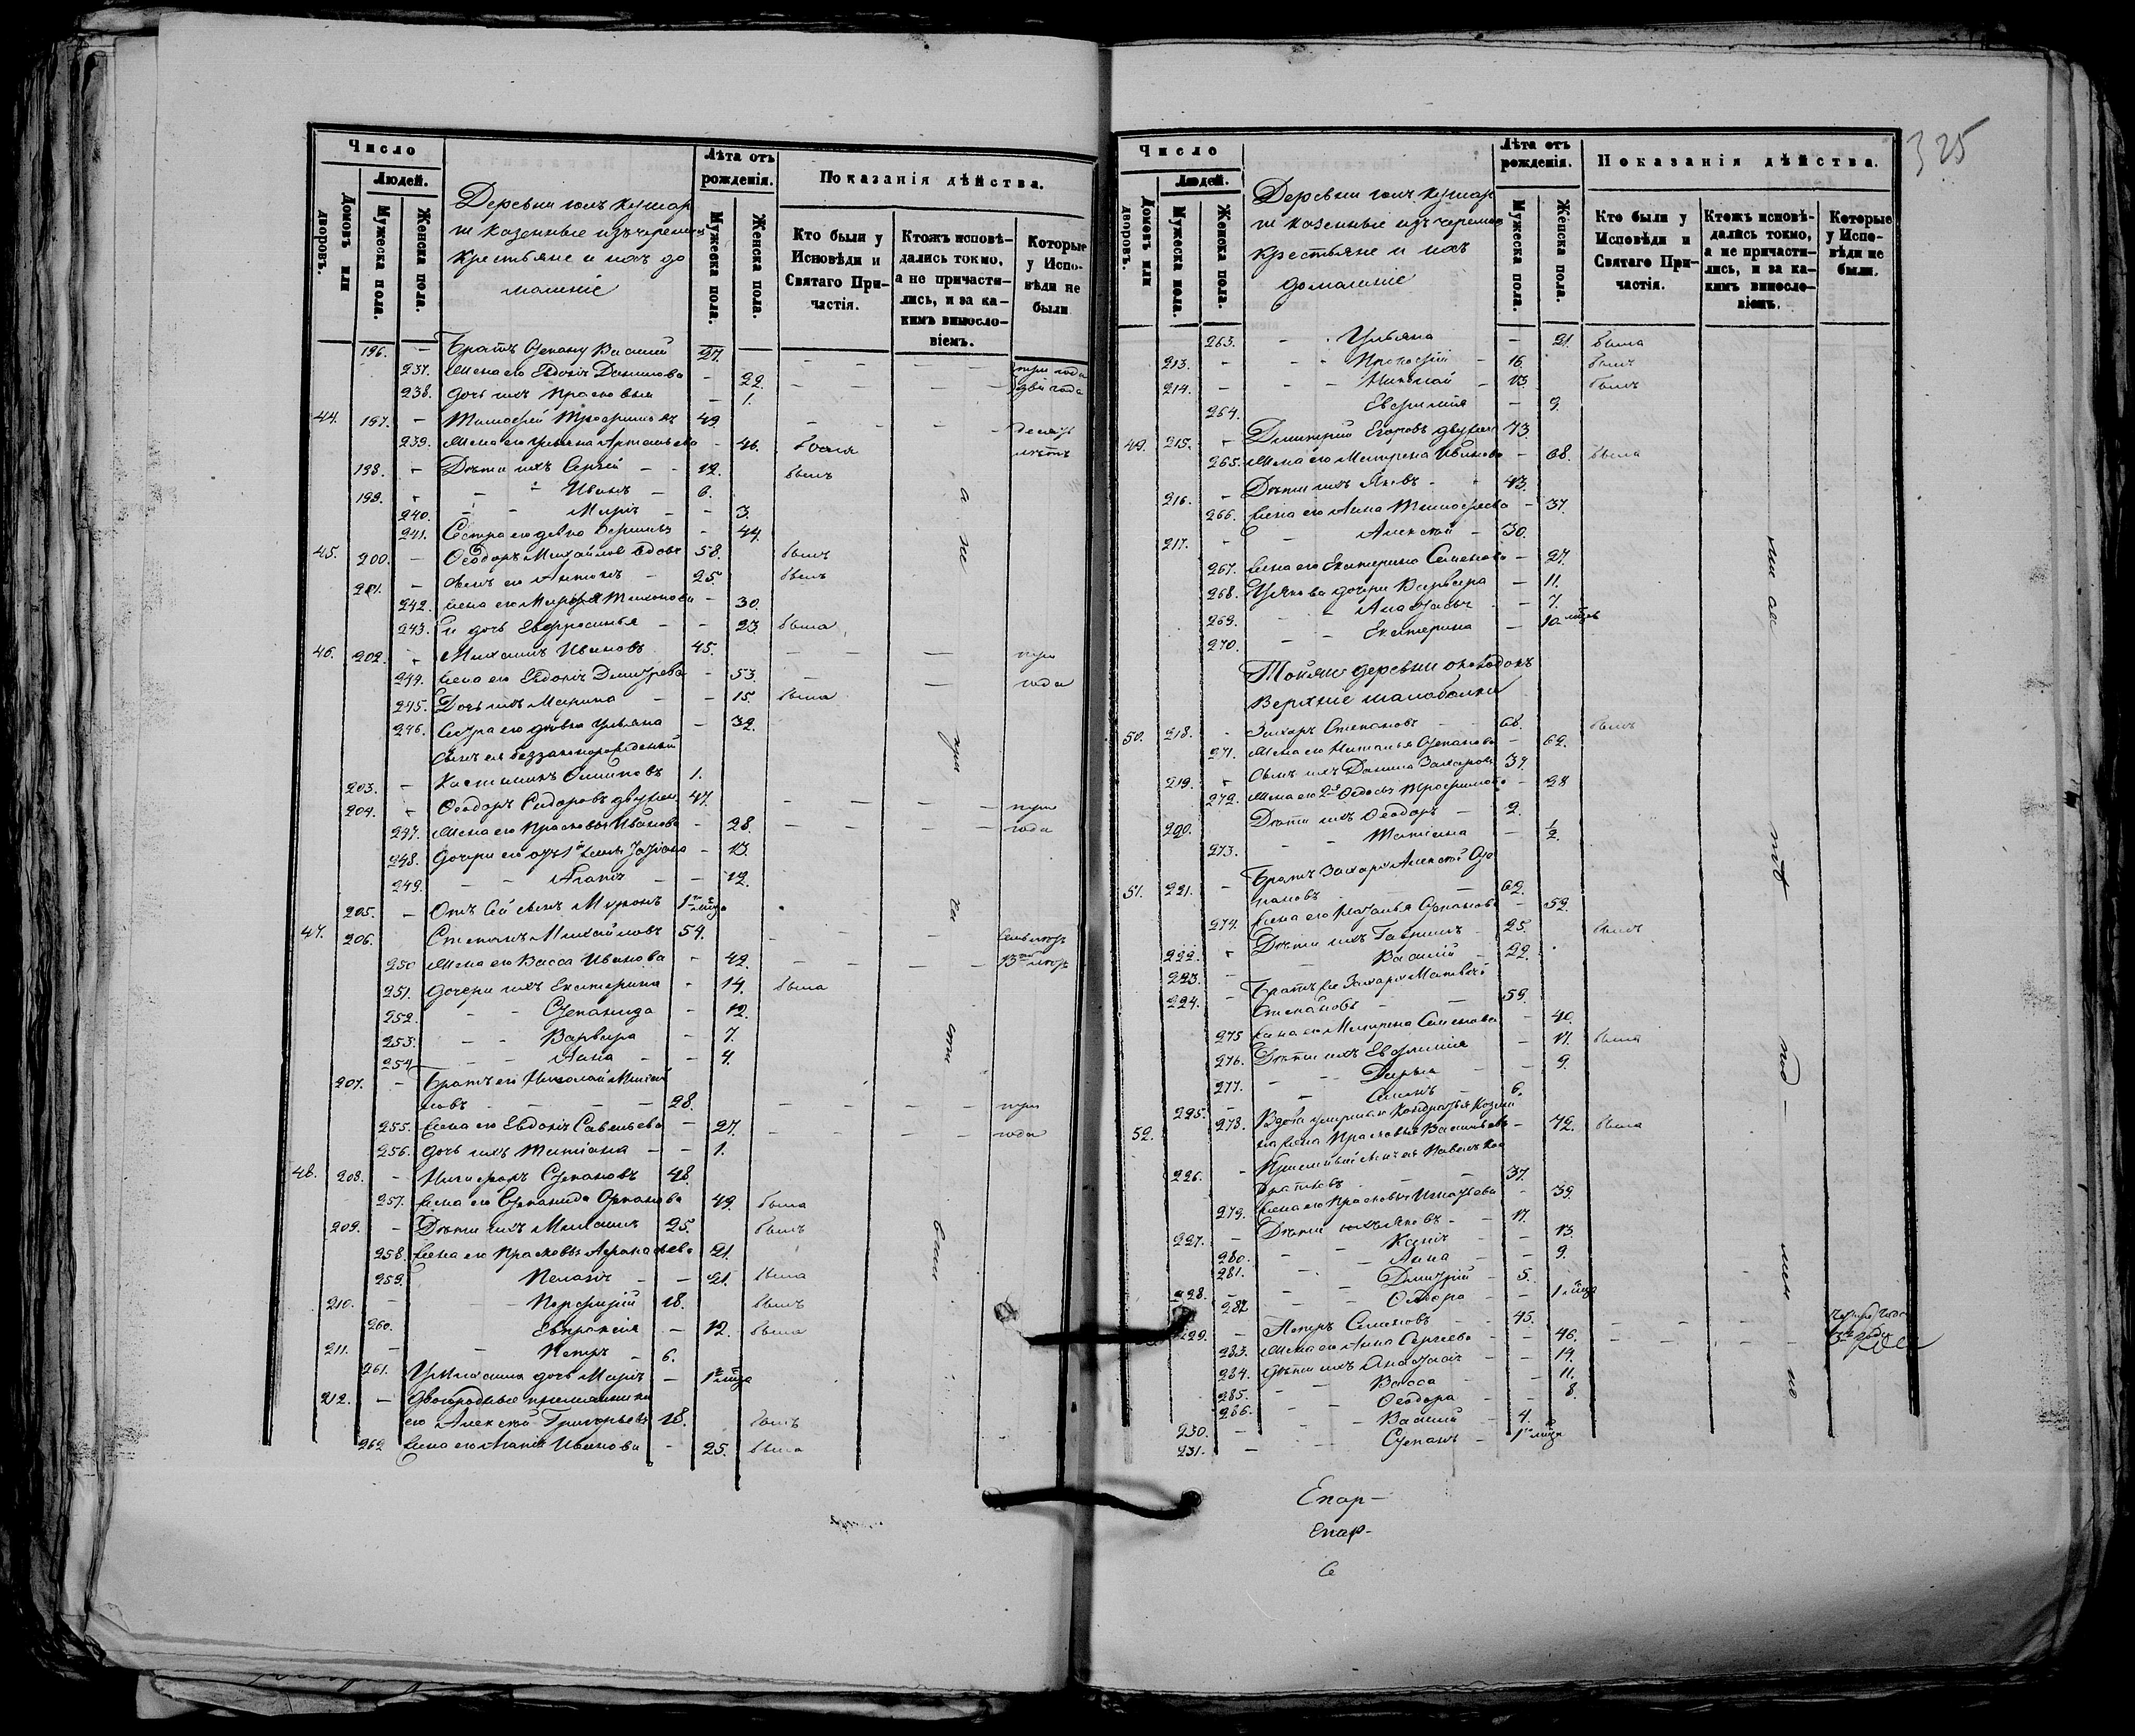 Число
Людей.
Домовъ или дворовъ.
Мужеска пола.
Женска пола.
Деревни
казенные изъ черемисъ
крестьяне и ихъ до
машніе
Лѣта отъ рожденія.
Мужеска пола.
Женска пола.
Показанія дѣйства.
Кто были у Исповѣди и Святаго Причастія.
Ктожъ исповѣдались токмо, а не причастились, и за какимъ винословіемъ.
Которые у Исповѣди не были
196. — Братъ Степану Василій 27.
237. Жена его Евдокія Данилова — 22. три года
238. Дочь ихъ Прасковья — 1. два года
44. 197. — Тимофей Трофимовъ 49 десять
239. Жена его Ульяна Артемьева — 46. была лѣтъ
198. — Дѣти ихъ Сергѣй — 12. былъ
199. — Иванъ — 6.
240. — Марія — 3.
241. Сестра его девка — 44.
45. 200. — Ѳеодоръ Михайловъ вдовъ 58. былъ
201. — сынъ его Антонъ — 25. былъ
242. жена его Марфа Тихонова — 30.
243. и дочь Евфросинья — 23. была
46. 202. — Михаилъ Ивановъ 45. три
244. жена его Евдокія Дмитрева — 53. года
245. Дочь ихъ Марина — 15. была
246. Сестра его дѣвка Ульяна — 32.
сынъ ея беззаконорожденный
203. — 1.
204. — Ѳеодоръ Сидоровъ двужен. 47. три
247. Жена его Прасковья Иванова — 28. года
248. Дочери его отъ 1й жены Татіана — 13.
249. — Агапія — 12.
205. — Отъ сей сынъ Миронъ 1го мѣсца
47. 206. Степанъ Михайловъ 59.
250 Жена его Васса Иванова — 42.
251. Дочери ихъ Екатерина — 14. была
252. — Степанида — 12.
253. — Варвара — 7.
254 — Анна — 4.
207. — Братъ его Николай Михай
ловъ — 28. три
255. жена его Евдокія Савельева — 27. года
256. дочь ихъ Татіана — 1.
48. 208. — Никифоръ Степановъ 48.
257. жена его Степанида Степанова 49. была
209. — Дѣти ихъ Михаилъ 25. былъ
258. жена его Прасковья Афанасьева 21.
259. Пелагія — 21. была
210. — Порфирій 18. былъ
260. Евпраксія — 12. была
211. — Петръ — 6.
261. У Михаила дочь Марія — 1го мѣсца
212. — Двоюродные племянники
его Алексѣй Григорьевъ 18. былъ
262 жена его Агапія Иванова — 25. была
325
Число
Людей.
Домовъ или дворовъ.
Мужеска пола.
Женска пола.
Деревни
казенные изъ черемисъ
крестьяне и ихъ
домашніе
Лѣта отъ рожденія.
Мужеска пола.
Женска пола.
Показанія дѣйства.
Кто были у Исповѣди и Святаго Причастія.
Ктожъ исповѣдались токмо, а не причастились, и за какимъ винословіемъ.
Которые у Исповѣди не были.
263. — Ульяна — 21. была
213. — Прокофій — 16. былъ
214. — Николай — 13. былъ
264. Евфимія — 9.
49. 215. — Дмитрій Егоровъ двужен 73.
265. Жена его Матрена Иванова — 68. была
216. — Дѣти ихъ Яковъ — 43.
266. жена его Анна Тимофеева — 37.
217. — Алексѣй — 30.
267. жена его Екатерина Семенова — 27.
268. У Якова дочери Варвара — 11.
269. — Анастасья — 7.
270. — Екатерина — 10 мѣсцъ
Тойже деревни околодокъ
Верхніе
50. 218. — Захаръ Степановъ 68. былъ
271. Жена его Наталья Степанова — 62.
219. — сынъ ихъ Данила Захаровъ 39.
272. Жена его 2я Ѳедосья Трофимова — 28
220. Дѣти ихъ Ѳеодоръ — 2.
273. — Татіана — 1/2.
51. 221. — Братъ Захара Алексѣй Сте
пановъ — 62.
274. жена его Наталья Степанова — 52.
222. — Дѣти ихъ Гавріилъ — 25. былъ
223. — Василій — 22.
224. — Братъ же Захара Матвѣй
Степановъ — 59.
275 жена его Матрена Семенова — 40.
276. Дѣти ихъ Евфимія — 17. была
277. — Дарья — 9.
225. — Семенъ — 6.
52. 278. Вдова умершаго Кондратья Козми
на жена Прасковья Васильева — 72. была
226. — Пріемный сынъ ея Павелъ Кон
дратьевъ — 37.
279. жена его Прасковья Игнатьева — 39.
227. — Дѣти ихъ Яковъ — 17.
280. — Ксенія — 13.
281. — Анна — 9.
228. — Дмитрій — 5.
282 — Ѳедора — 1 мѣсца
229. — Петръ Семеновъ 45. четыре года
283. Жена его Анна Сергеева — 46.
284. Дѣти ихъ Анастасія — 14.
285. — Васса — 11.
286. — Ѳеодора — 8.
230. — Василій — 4.
231. — Степанъ — 1го мѣсца
Епар-
Епар-
С